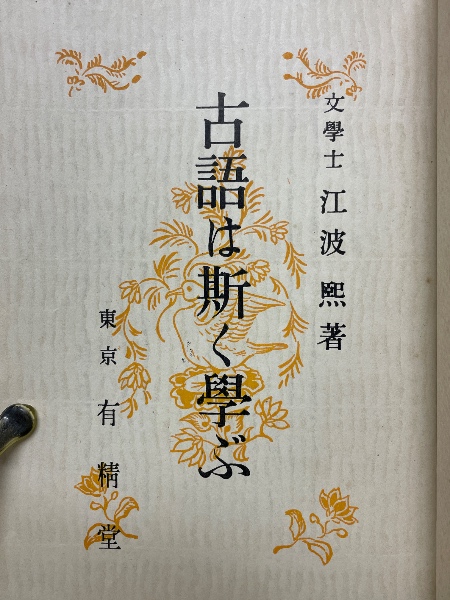 文學士 江波熙著
古語は斯く學ぶ
東京 有精堂